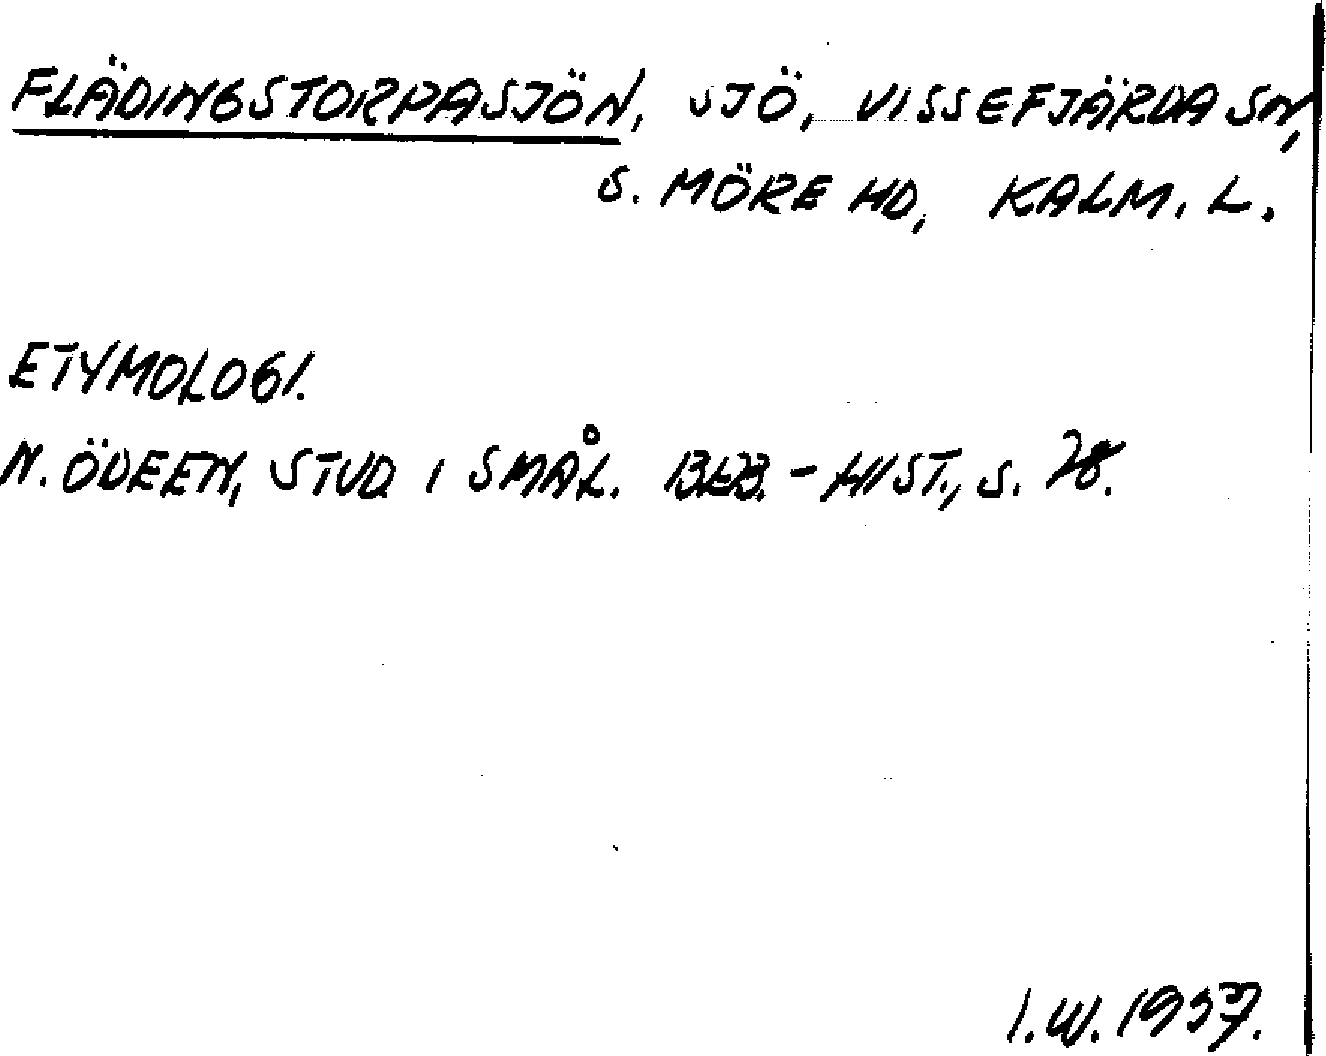 FLÄDINGSTORPASJÖN, SJÖ, VISSEFJÄRDA SN,
S. MÖRE HD, KALM. L.
ETYMOLOGI.
N. ÖDEEN, STUD I SMÅL. BEB.-HIST., S. 78.
I.W. 1937.